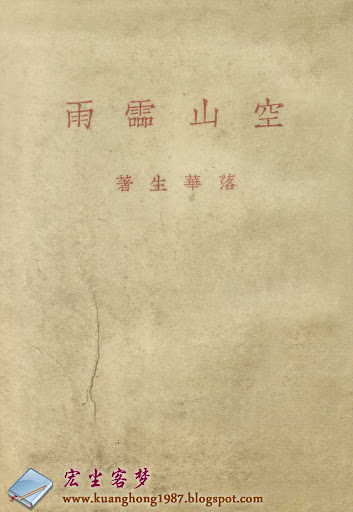 空山靈雨
落華生著
宏尘客梦
www.kuanghong1987.blogspot.com